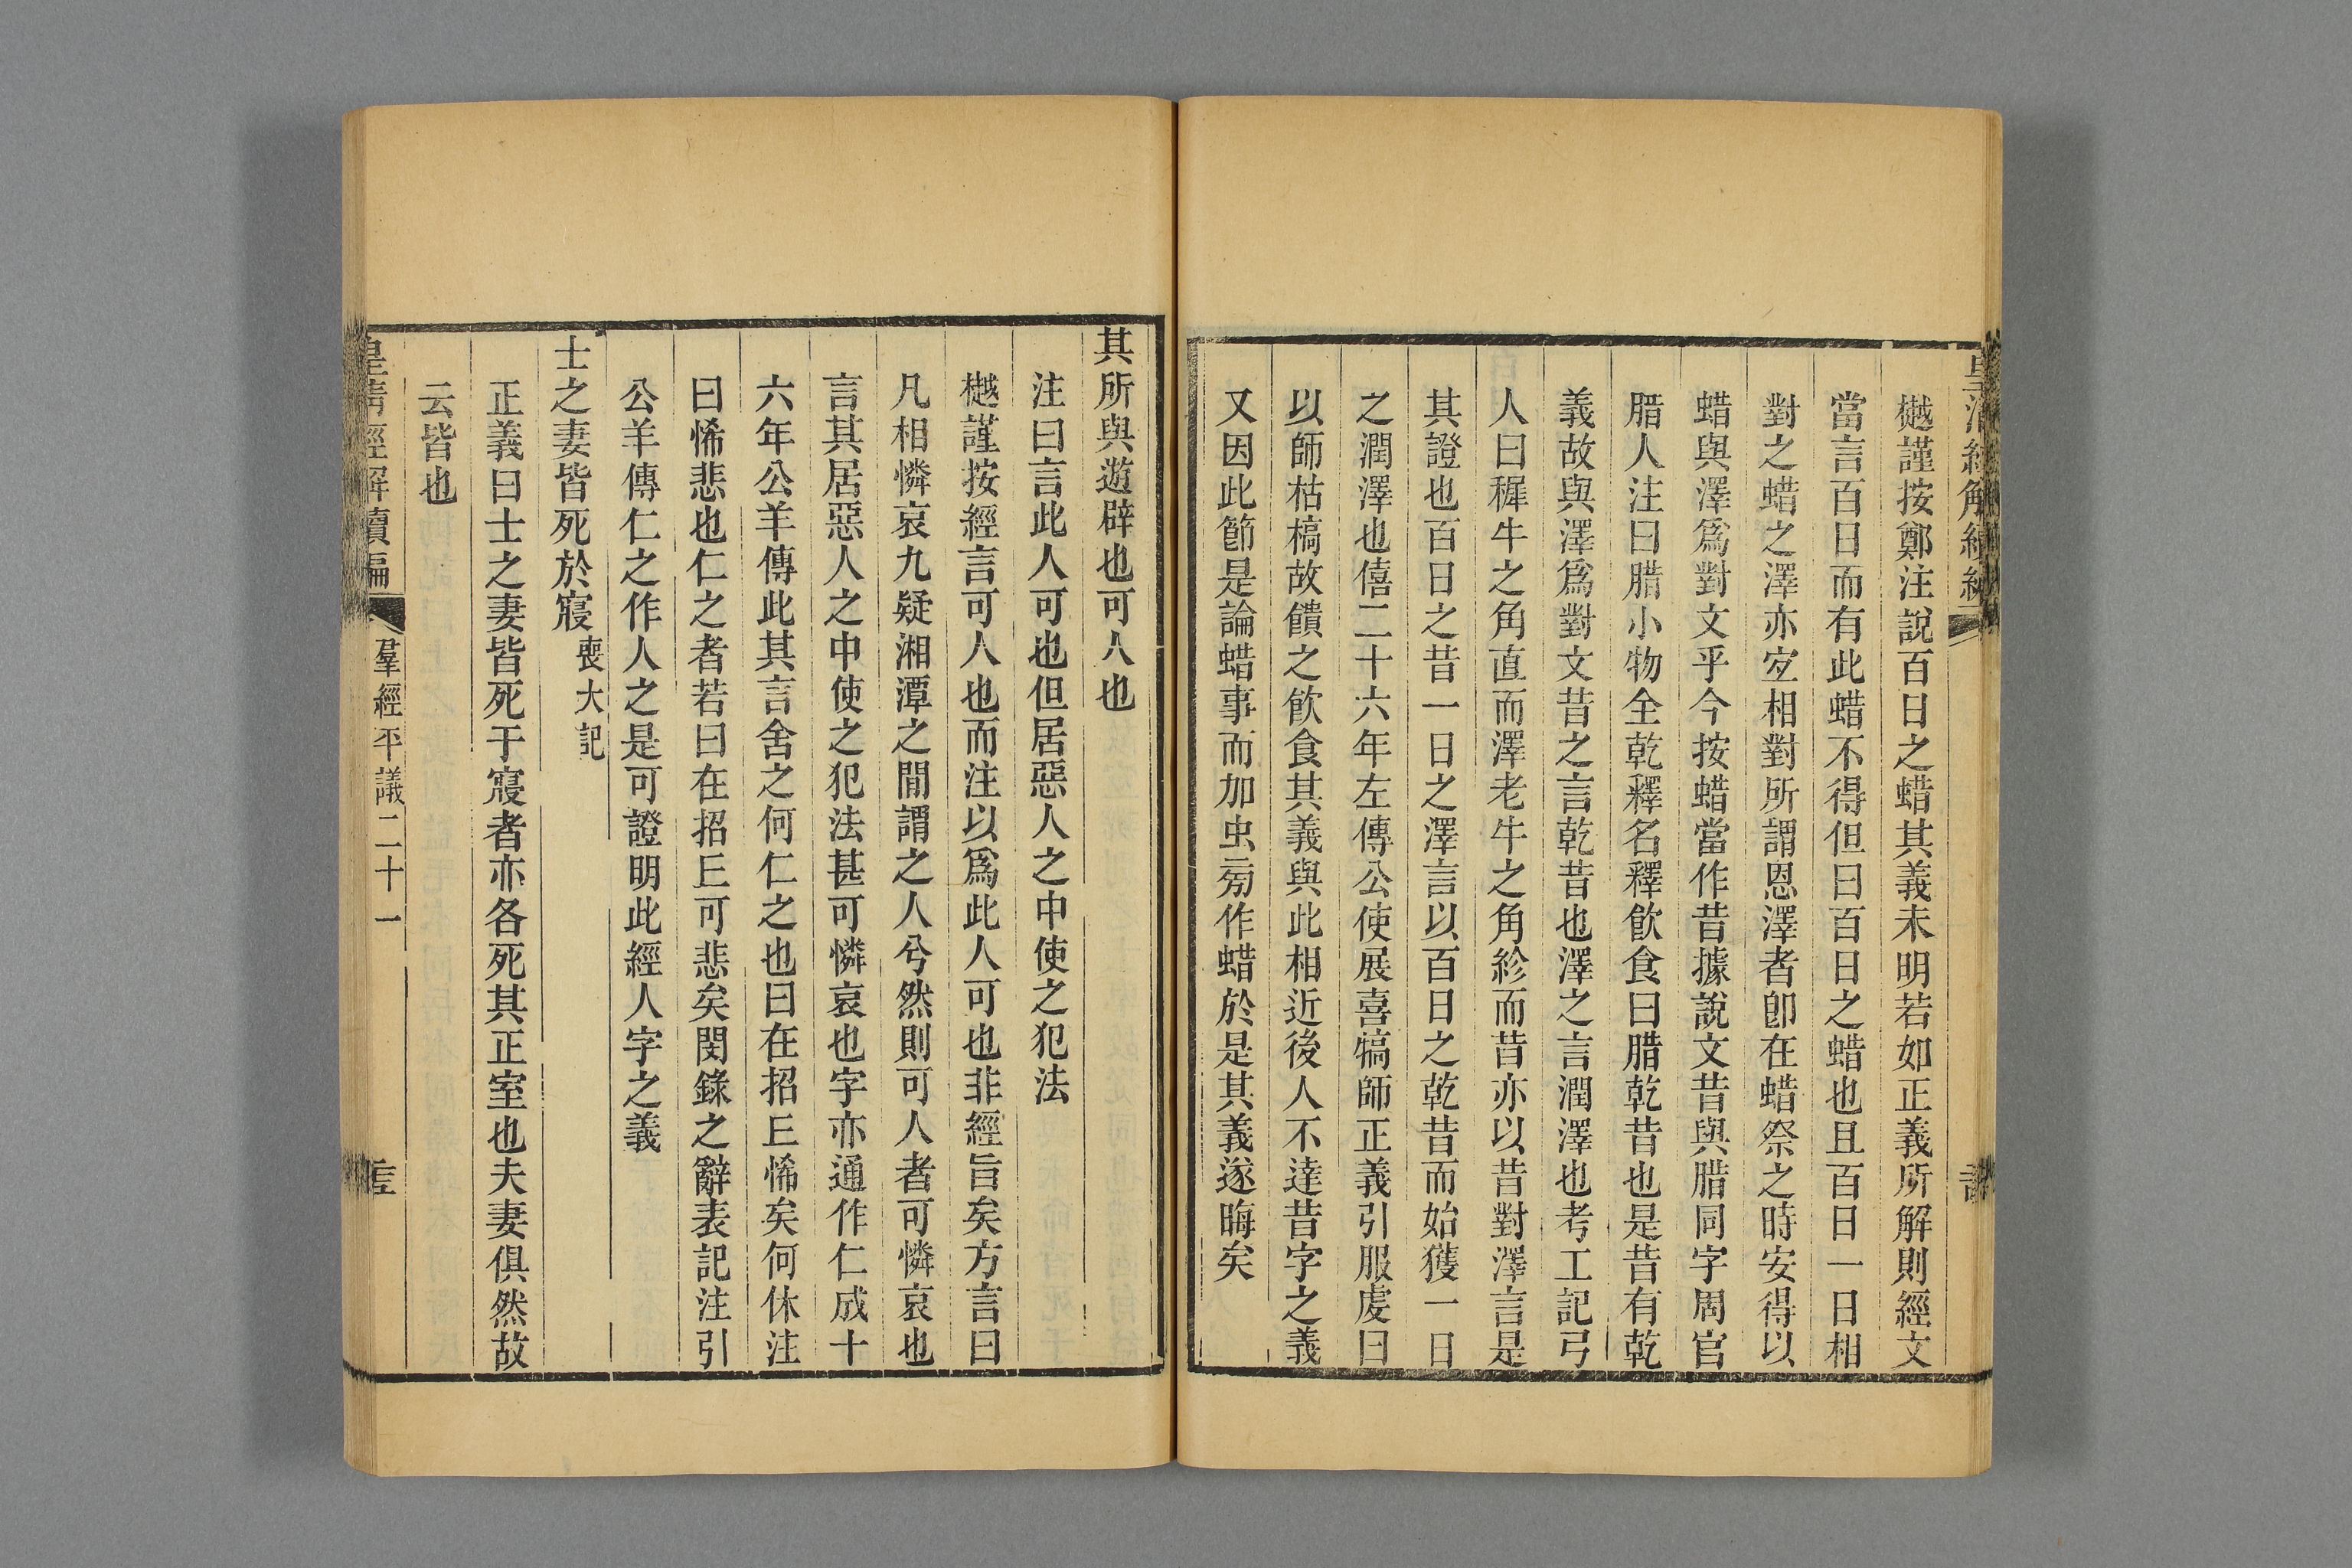 樾謹按鄭注說百日之蜡其義未明若如正義所解則經文
當言百日而有此蜡不得但曰百日之蜡也且百日一日相
對之蜡之澤亦宐相對所謂恩澤者卽在蜡祭之時安得以
蜡與澤爲對文乎今按蜡當作昔據說文昔與腊同字周官
腊人注曰腊小物全乾釋名釋飲食曰腊乾昔也是昔有乾
義故與澤爲對文昔之言乾昔也澤之言潤澤也考工記弓
人曰穉牛之角直而澤老牛之角紾而昔亦以昔對澤言是
其證也百日之昔一日之澤言以百日之乾昔而始獲一日
之潤澤也僖二十六年左傳公使展喜犒師正義引服虔曰
以師枯槁故饋之飲食其義與此相近後人不達昔字之義
又因此節是論蜡事而加虫旁作蜡於是其義遂晦矣
其所與遊辟也可人也
注曰言此人可也但居惡人之中使之犯法
樾謹按經言可人也而注以爲此人可也非經旨矣方言曰
凡相憐哀九疑湘潭之閒謂之人兮然則可人者可憐哀也
言其居惡人之中使之犯法甚可憐哀也字亦通作仁成十
六年公羊傳此其言舍之何仁之也曰在招丘悕矣何休注
曰悕悲也仁之者若曰在招丘可悲矣閔錄之辭表記注引
公羊傳仁之作人之是可證明此經人字之義
士之妻皆死於寢 喪大記
正義曰士之妻皆死于寢者亦各死其正室也夫妻俱然故
云皆也
皇清經解續編 羣經平議二十一